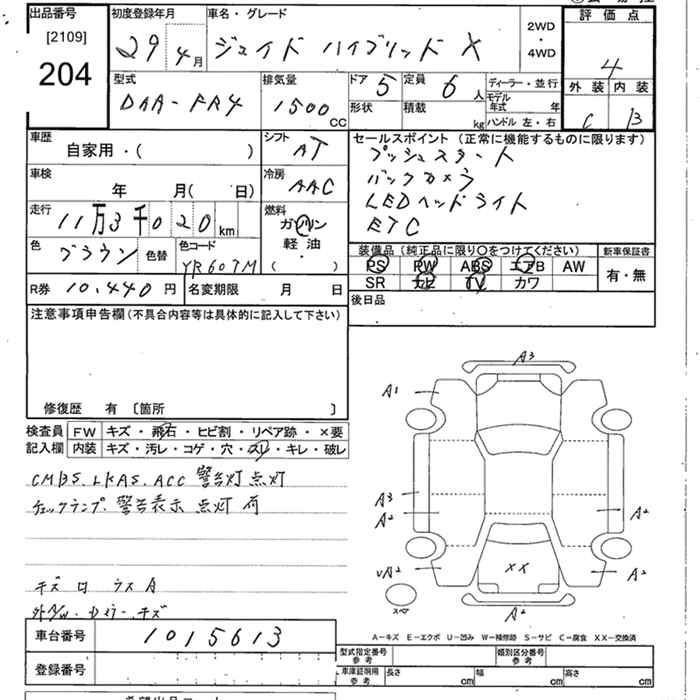 出品番号 初度登録年月 車名・グレード 評価点
[2109]
204
29年4月 ジェイド ハイブリッド X 2WD・4WD 4
型式 排気量 ドア 5 定員 6人 ディーラー・並行 外装 内装
DAA-FR4 1500CC 形状 積載 kg モデル年式 年 C B
ハンドル 左・右
車歴 シフト セールスポイント (正常に機能するものに限ります)
自家用・( ) AT プッシュスタート
車検 冷房 バックカメラ
年 月( 日) AAC LEDヘッドライト
走行 11万3千020km 燃料 ETC
ガソリン
軽油
・
( )
色 ブラウン 色替 色コード YR607M
装備品 (純正品に限り○をつけてください) 新車保証書
PS PW ABS エアB AW 有・無
SR ナビ TV カワ
R券 10,440円 名変期限 月 日 後日品
注意事項申告欄(不具合内容等は具体的に記入して下さい)
修復歴 有 〔箇所 〕
検査員 FW キズ・飛石・ヒビ割・リペア跡・×要
記入欄 内装 キズ・汚レ・コゲ・穴・スレ・キレ・破レ
CMBS、LKAS、ACC 警告灯点灯
チェックランプ、警告表示 点灯 有
キズ 凹 ウス A
外
キズ
A3
A1
A3
A2
A2
UA2
A2
XX
A2
スペア
A-キズ E-エクボ U-凹み W-補修跡 S-サビ C-腐食 XX-交換済
車台番号 1015613
登録番号
型式指定番号 参考 類別区分番号 参考
車庫証明用 参考 長さ cm 幅 cm 高さ cm